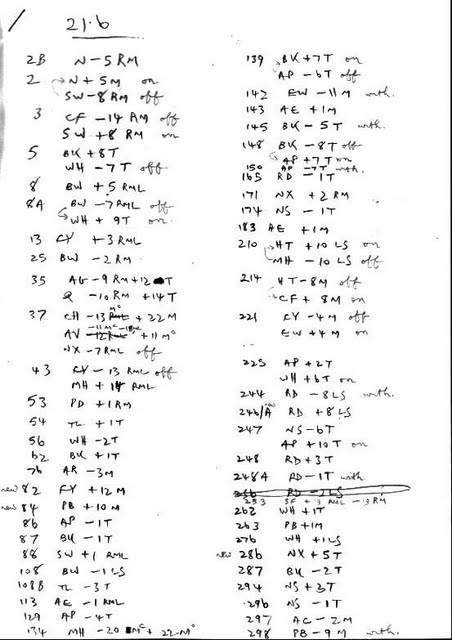 21.6
2B N - 5 RM
2 N + 5M on
SW - 8 RM off
3 CF - 14 RM off
SW + 8 RM on
5 BK + 8T
WH - 7T off
8 BW + 5 RML
8A BW - 7 RML off
WH + 9T on
13 FY + 3 RML
25 BW - 2 RM
35 AG - 9 RM + 12 T
Q - 10 RM + 14T
37 CH - 13 + 22 M
AV + 11 M°
NX - 7 RML off
43 FY - 13 RML off
MH + 14 RML
53 PD + 1 RM
54 TL + 1T
56 WH - 2T
62 BK + 1T
76 AR - 3M
new 82 FY + 12 M
new 84 PB + 10 M
86 AP - 1T
87 BK - 1T
88 SW + 1 RML
108 BW - 1 LS
108B TL - 3T
113 AE - 1 RML
129 AP - 4T
134 MH - 20 M° + 22 M°
139 BK + 7T on
AP - 6T off
142 EW - 11 M with.
143 AE + 1M
145 BK - 5T with.
148 BK - 8T off
AP + 7T on
150 AP - 7T with.
165 RD - 1T
171 NX + 2 RM
174 NS - 1T
183 AE + 1M
210 HT + 10 LS on
MH - 10 LS off
214 HT - 8M off
CF + 8M on
221 FY - 4M off
EW + 4M on
225 AP + 2T
WH + 6T on
244 RD - 8 LS with.
246/A new RD + 8 LS
247 NS - 6T
AP + 10T on
248 RD + 3T
248A RD - 1T with
RD - 2 LS
253 - 13 RM
262 WH + 1T
263 PB + 1M
276 WH + 1 LS
new 286 NX + 5T
287 BK - 2T
294 NS + 3T
296 NS - 1T
297 AC - 2M
298 PB - 9M with.